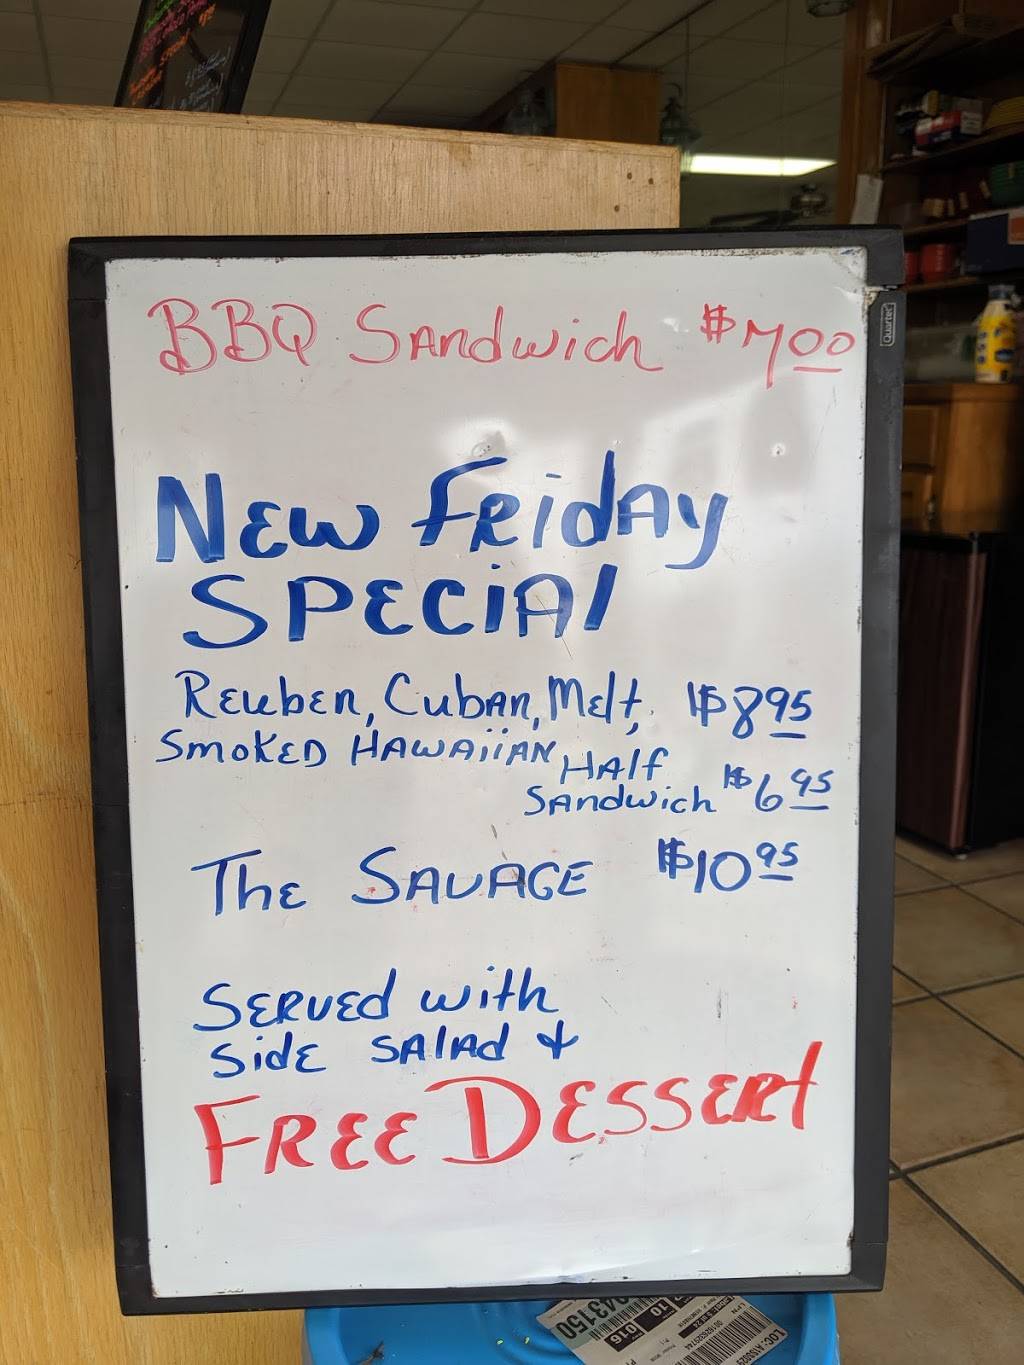 BBQ Sandwich $7.00
Quartet
New Friday
Special
Reuben, Cuban, Melt, $8.95
Smoked Hawaiian
Half
Sandwich $6.95
The Savage $10.95
Served with
side salad &
Free Dessert
43150
10
016